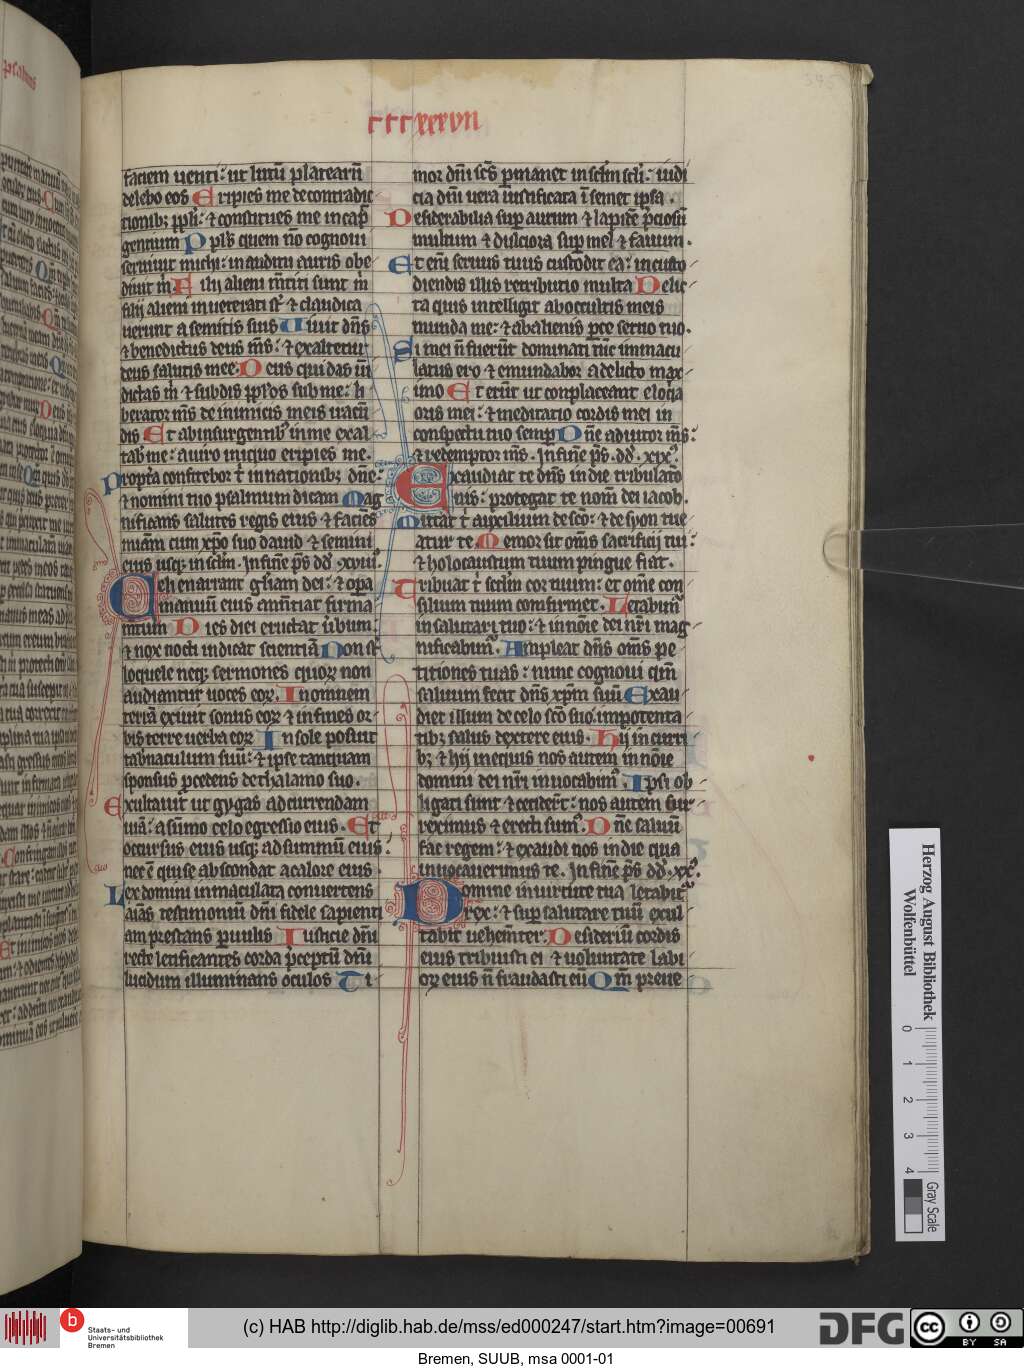 cccxxxvii
faciem uenti: ut lutū platearū
delebo eos Eripies me de contradic
tionibꝫ ppl̄i: ⁊ constitues me in cap̄
gentium Ppl̄s quem nō cognoui
seruiuit michi: in auditu auris obe
diuit m̄ Filij alieni m̄titi sunt m̄
filij alieni inueterati st̄ ⁊ claudica
uerunt a semitis suis Uiuit dn̄s
⁊ benedictus deus ms̄: ⁊ exaltetur
deus salutis mee Deus qui das uī
dictas m̄ ⁊ subdis ppl̄os sub me: li
berator ms̄ de inimicis meis iracū
dis Et ab insurgentibꝰ in me exal
tab̄ me: a uiro iniquo eripies me.
Propt̄a confitebor t̄ in nationibꝫ dn̄e:
⁊ nomini tuo psalmum dicam Mag
nificans salutes regis eius ⁊ faciēs
miām cum xp̄o suo dauid ⁊ semini
eius usqꝫ in sclm̄. In fine p̄s dd̄ .xviii.
Celi enarrant gl̄iam dei: ⁊ opa
manuū eius annūtiat firma
mtum Dies diei eructat ūbum:
⁊ nox nocti indicat scientiā Non st̄
loquele neqꝫ sermones quoꝝ non
audiantur uoces eoꝝ. In omnem
terrā exiuit sonus eoꝝ ⁊ in fines or
bis terre uerba eoꝝ In sole posuit
tabnaculum suū: ⁊ ipse tanquam
sponsus pcedens de thalamo suo.
Exultauit ut gygas ad currendam
uiā: a sūmo celo egressio eius. Et
occursus eius usqꝫ ad summū eius:
nec ē qui se abscondat a calore eius
Lex domini inmaculata conuertens
aīas testimoniū dn̄i fidele sapienti
am prestans paruulis Iusticie dn̄i
recte letificantes corda pceptū dn̄i
lucidum illuminans oculos Ti
mor dn̄i scs̄ pmanet in sclm̄ scli: iudi
cia dn̄i uera iustificata ī semet ipsa.
Desiderabilia sup aurum ⁊ lapidē pciosū
multum ⁊ dulciora sup mel ⁊ fauum.
Et enī seruus tuus custodit ea: in custo
diendis illis retributio multa Delic
ta quis intelligit ab occultis meis
munda me: ⁊ ab alienis pce seruo tuo.
Si mei n̄ fuerūt dominati tūc inmacu
latus ero ⁊ emundabor a delicto max
imo Et erūt ut conplaceant eloqa
oris mei: ⁊ meditatio cordis mei in
conspectu tuo semp Dn̄e adiutor ms̄:
⁊ redemptor ms̄. In fine p̄s. dd̄. xix.
Exaudiat te dn̄s in die tribulatō
nis: protegat te nom̄ dei iacob.
Mittat t̄ auxilium de scō: ⁊ de syon tue
atur te. Memor sit om̄s sacrificij tui:
⁊ holocaustum tuum pingue fiat.
Tribuat t̄ scdm̄ cor tuum: et om̄e con
silium tuum comfirmet. Letabimᷣ
in salutari tuo: ⁊ in noīe dei nr̄i mag
nificabimᷣ. Ampleat dn̄s om̄s pe
titiones tuas: nunc cognoui qm̄
saluum fecit dn̄s xpm̄ suū Exau
diet illum de celo scō suo: impotenta
tibꝫ salus dextere eius. Hij in curri
bꝫ ⁊ hij inequis nos autem in noīe
domini dei nr̄i inuocabimꝰ. Ipsi ob
ligati sunt ⁊ cecidert̄: nos autem sur
reximus ⁊ erecti sumꝰ. Dn̄e saluū
fac regem: ⁊ exaudi nos in die qua
inuocauerimus te. In fine p̄s dd̄ .xx.
Domine in uirtute tua letabit᷑
rex: ⁊ sup salutare tuū exul
tabit uehemter. Desideriū cordis
eius tribuisti ei ⁊ uoluntate labi
oꝝ eius n̄ fraudasti eū Qm̄ preue
Herzog August Bibliothek
Wolfenbüttel
0 1 2 3 4
Gray Scale
b
Staats- und
Universitätsbibliothek
Bremen
(c) HAB http://diglib.hab.de/mss/ed000247/start.htm?image=00691
DFG
cc BY SA
Bremen, SUUB, msa 0001-01